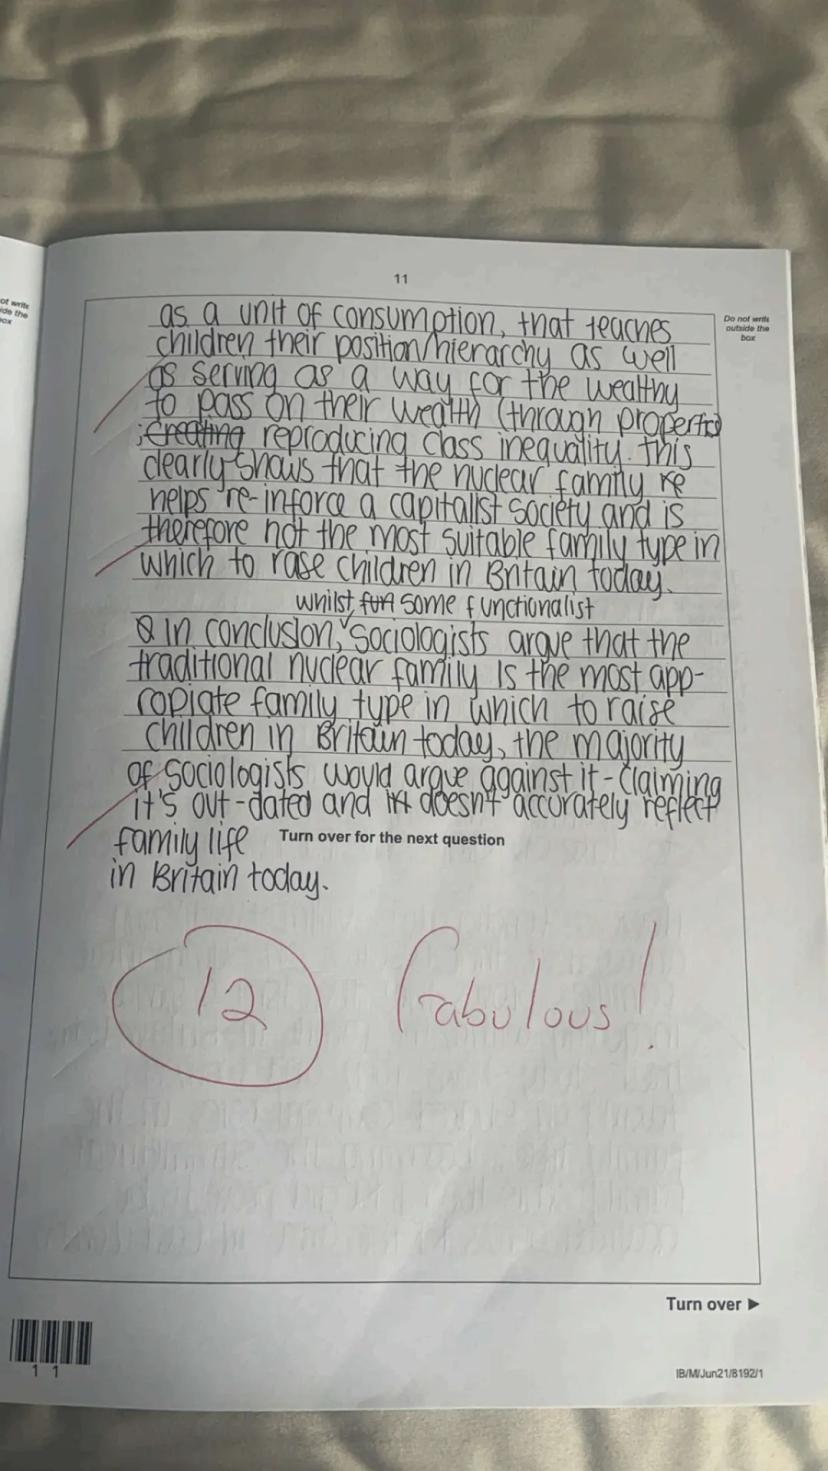 11
ot write
ide the
box
Do not write
outside the
box
as a unit of consumption, that teaches
children their position/hierarchy as well
as serving as a way for the wealthy
to pass on their wealth (through property)
creating reproducing class inequality. This
clearly shows that the nuclear family re
helps re-inforce a capitalist society and is
therefore not the most suitable family type in
which to rase children in Britain today.
whilst fun some functionalist
In conclusion, sociologists argue that the
traditional nuclear family is the most app-
ropiate family type in which to raise
children in Britain today, the majority
of sociologists would argue against it - claiming
it's out-dated and doesn't accurately reflect
family life Turn over for the next question
in Britain today.
12 fabulous!
Turn over ►
1 1
IB/M/Jun21/8192/1